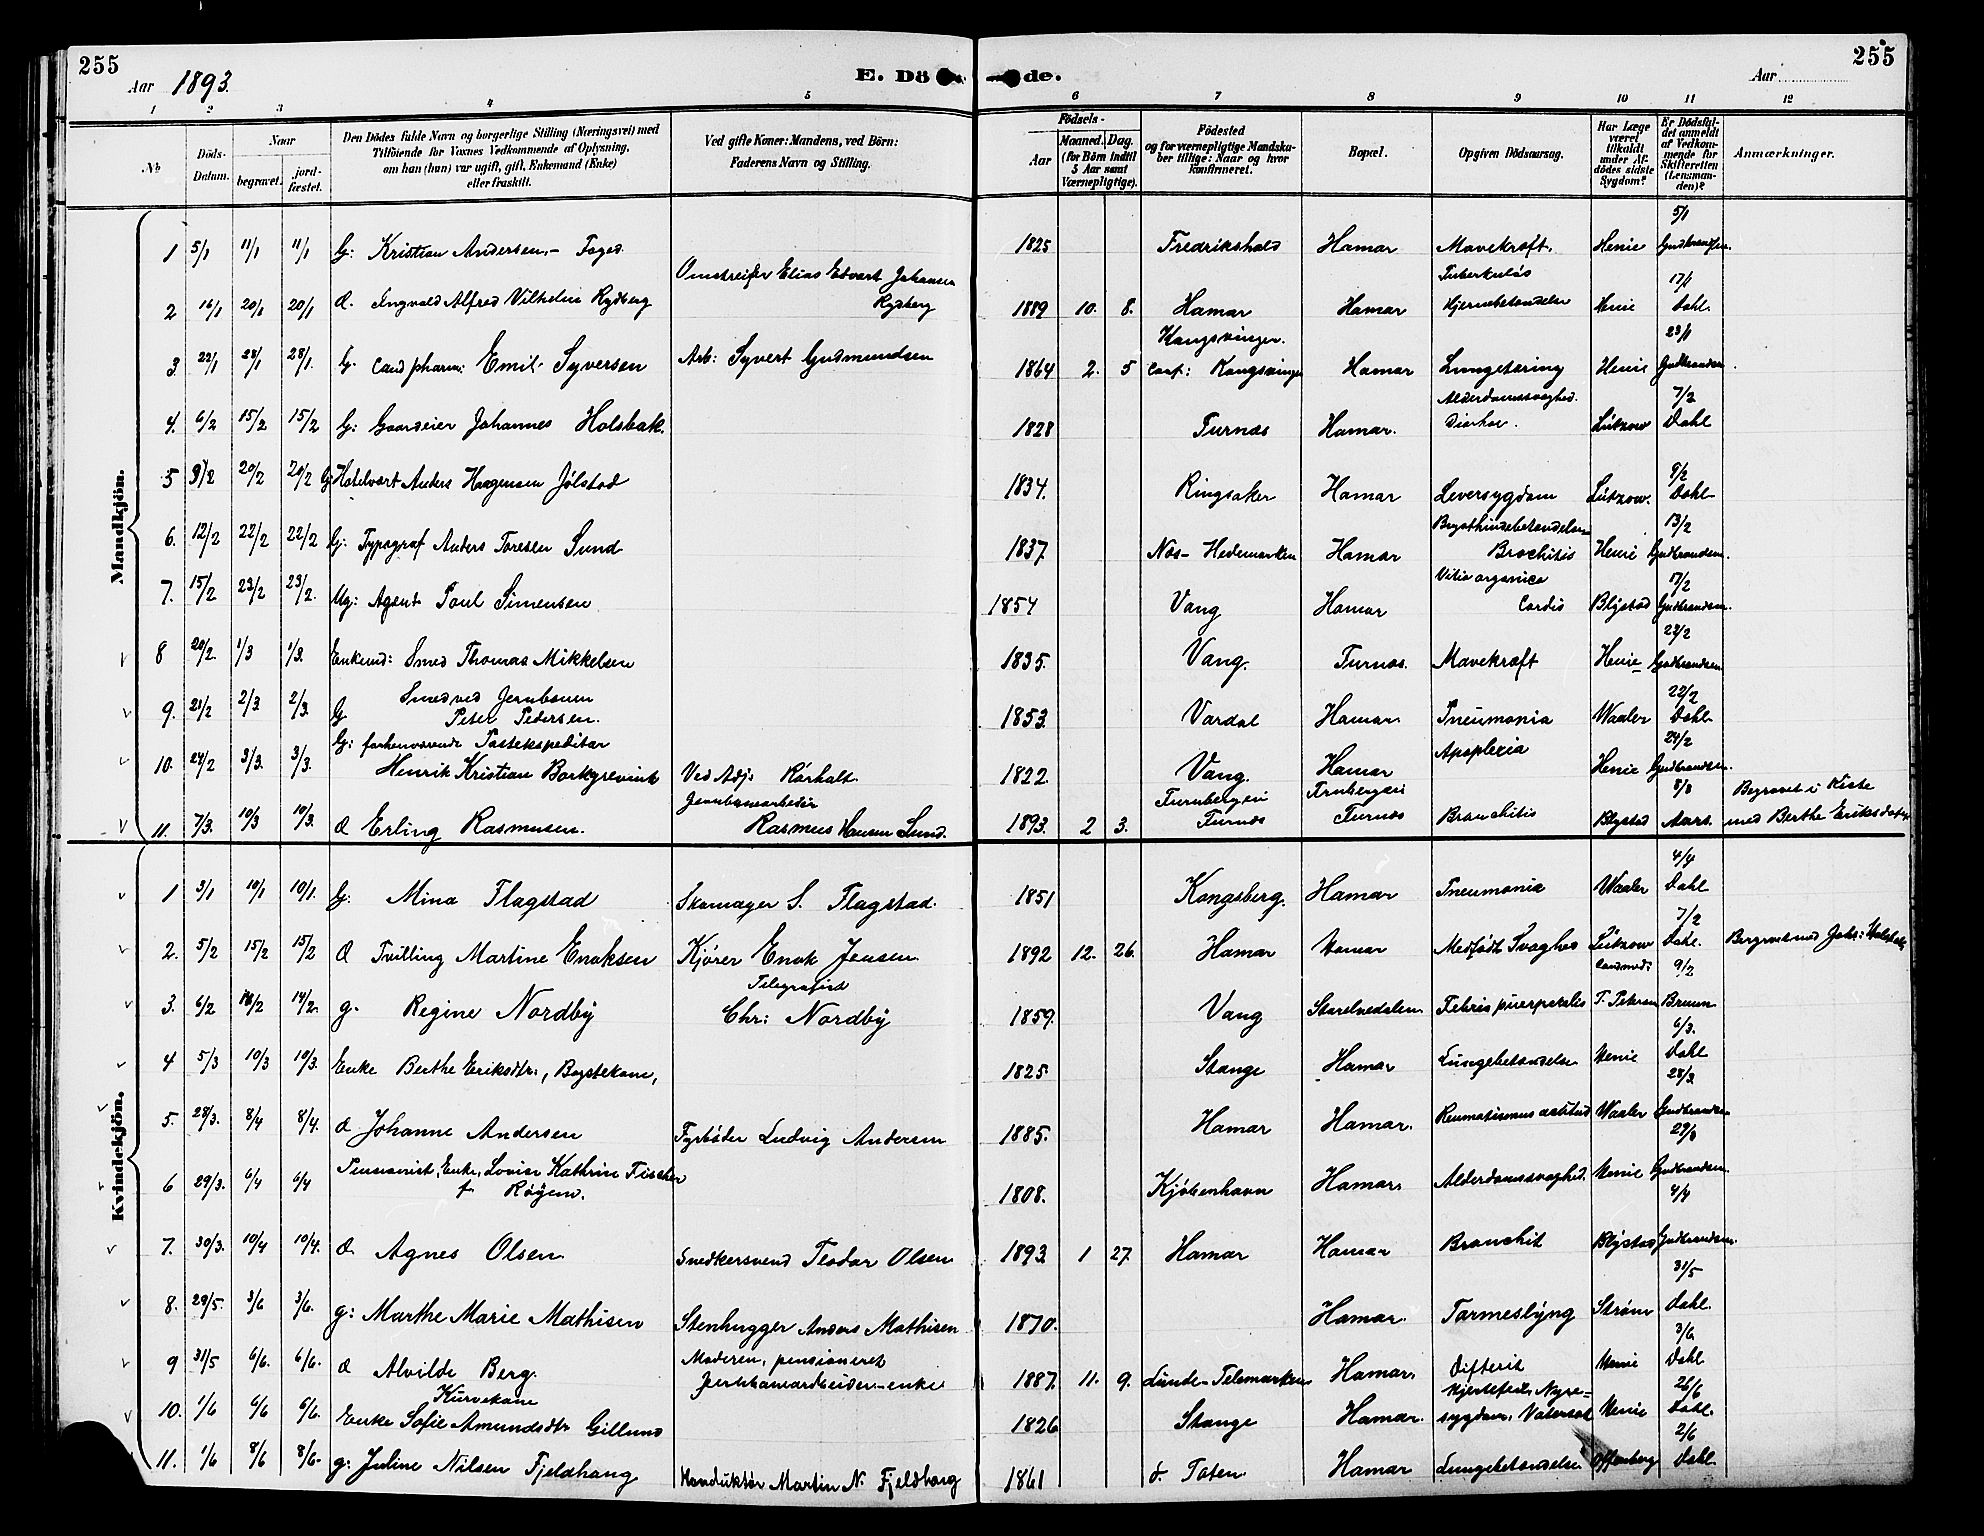 255
Aar 1893.
E. Dö de.
Aar
255
1 2 3 4 5 6 7 8 9 10 11 12
No
Döds-Datum.
Naar
begravet.
jord-fæstet.
Den Dödes fulde Navn og borgerlige Stilling (Næringsvei) med
Tilföiende for Voxnes Vedkommende af Oplysning,
om han (hun) var ugift, gift, Enkemand (Enke)
eller fraskilt.
Ved gifte Koner: Mandens, ved Börn:
Faderens Navn og Stilling.
Födsels-
Aar
Maaned. Dag.
(for Börn indtil
5 Aar samt
Værnepligtige).
Födested
og for værnepligtige Mandska-
ber tillige: Naar og hvor
konfirmeret.
Bopæl.
Opgiven Dödsaarsag.
Har Læge
været
tilkaldt
under Af-
dödes sidste
Sygdom?
Er Dödsfal-
det anmeldt
af Vedkom-
mende for
Skifteretten
(Lensman-
den)?
Anmærkninger.
Mandkjön.
1 5/1 11/1 11/1 G: Kristian Andersen, - Foged 1825 Fredrikshald Hamar Mavekræft. Henie 5/1 Gudbrandsen
2 16/1 20/1 20/1 d. Ingvald Alfred Vilhelm Rydberg Omstreifer Elias Edvart Johansen Rydberg 1889 10. 8. Hamar Hamar Tuberkuløs Hjernebetændelse Henie 17/1 Dahl.
3. 22/1 28/1 28/1. G. Cand pharm: Emil Syversen Arb: Syvert Gudmundsen 1864 2. 5 Kongsvinger. Conf: Kongsvinger Hamar Lungetæring Henie 23/1 Gudbrandsen
4. 6/2 15/2 15/2 G: Gaardeier Johannes Holsbak. 1828 Furnæs Hamar. Alderdomssvaghed. Diarhoe. Lützow 7/2 Dahl
5 9/2 20/2 20/2 G: Hotelvært Anders Haagensen Jølstad 1834. Ringsaker Hamar Leversygdom Lützow. 9/2 Dahl
6. 12/2 22/2 22/2 G: Typograf Anders Toresen Sund 1837 Næs - Hedemarken Hamar Brysthindebetændelse Brochitis Henie 13/2 Gudbrandsen.
7. 15/2 23/2 23/2. Ug: Agent Poul Simensen 1854 Vang Hamar Vitia organica Cordis Blystad 17/2 Gudbrandsen.
8 20/2. 1/3 1/3. Enkemd: Smed Thomas Mikkelsen 1835. Vang. Furnæs. Mavekræft Henie 22/2 Gudbrandsen
9. 21/2 2/3. 2/3. G Smed ved Jernbanen Peter Pedersen. 1853. Vardal Hamar. Pneumonia Waaler 22/2 Dahl
10. 24/2 3/3. 3/3. G: forhenværende Postekspeditør Henrik Kristian Borkgrevink Ved Adj: Rörholt. 1822. Vang. Hamar Apoplexia Henie 24/2 Gudbrandsen.
11. 7/3. 10/3 10/3. d Erling Rasmusen. Jernbanearbeider Rasmus Hansen Lund. 1893. 2 3. Furnbergeie Furnæs Furnbergeie Furnæs Bronchitis Blystad 8/3 Aars. Begravet i Kiste med Berthe Eriksdatter
Kvindekjön.
1 3/1 10/1 10/1. G: Mina Flagstad Skomager S. Flagstad. 1851 Kongsberg. Hamar Pneumonia Waaler 4/4 Dahl
2. 5/2 15/2 15/2 d Tvilling Martine Enoksen Kjører Enok Jensen 1892 12. 26. Hamar Hamar Medfødt Svaghed Lützow 7/2 Dahl. Begravet med Johs: Holsbak
3. 6/2 14/2 14/2. g. Regine Nordby Telegrafist Chr: Nordby 1859. Vang Storelvedalen Febris puerperalis Candmed: T. Petersen 9/2 Bruun
4 5/3 10/3 10/3. Enke Berthe Eriksdtr:, Bogstekone, 1825. Stange Hamar Lungebetændelse Henie 6/3. Dahl
5. 28/3. 8/4 8/4. d Johanne Andersen Fyrbøder Ludvig Andersen 1885. Hamar Hamar. Reumatismus Waaler 28/3 Gudbrandsen
6 29/3. 6/4 6/4 Pensionist, Enke, Lovise Kathrine Fischer f Røyem. 1808. Kjøbenhavn Hamar. Alderdomssvaghed. Henie 29/3 Gudbrandsen.
7. 30/3. 10/4 10/4. d. Agnes Olsen Snedkersvend Teodor Olsen 1893 1 27. Hamar Hamar Bronchit Blystad 4/4 Gudbrandsen.
8. 29/5. 3/6 3/6. g: Marthe Marie Mathisen Stenhugger Anders Mathisen 1870. Hamar. Tarmeslyng Strøm 31/5 Dahl.
9 31/5 6/6. 6/6. d Alvilde Berg. Moderen, pensioneret Jernbanearbeider-enke 1887. 11. 9. Lunde - Telemarken Hamar. Difterit Henie 3/6 Dahl
10. 1/6 6/6 6/6. Kurvekone Enke Sofie Amundsdtr Gillund 1826 Stange Hamar. Hjertefeil, Nyre=sygdom, Vatersot Henie 26/6 Dahl.
11. 1/6 8/6 8/6. g: Juline Nilsen Fjeldhaug Konduktør Martin N. Fjeldhaug 1861 Ø. Toten. Hamar Lungebetændelse Offenberg 2/6 Dahl.